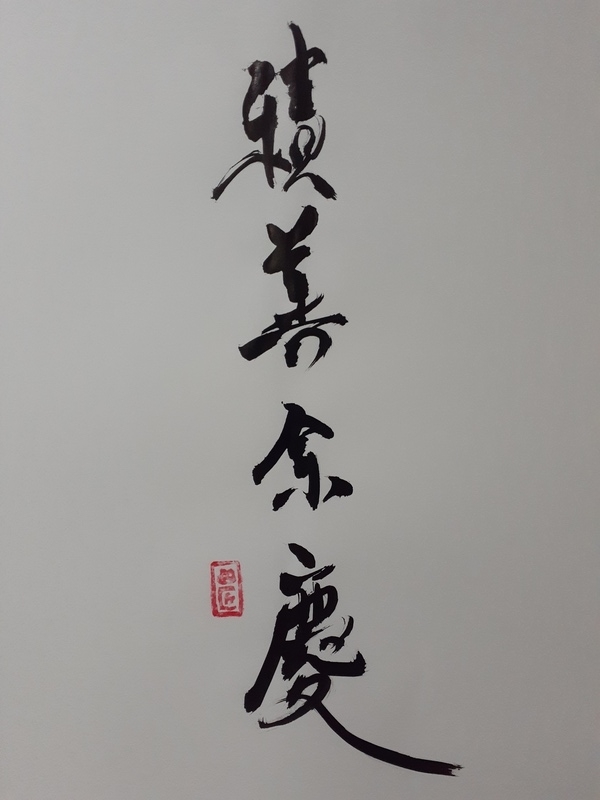 積善余慶